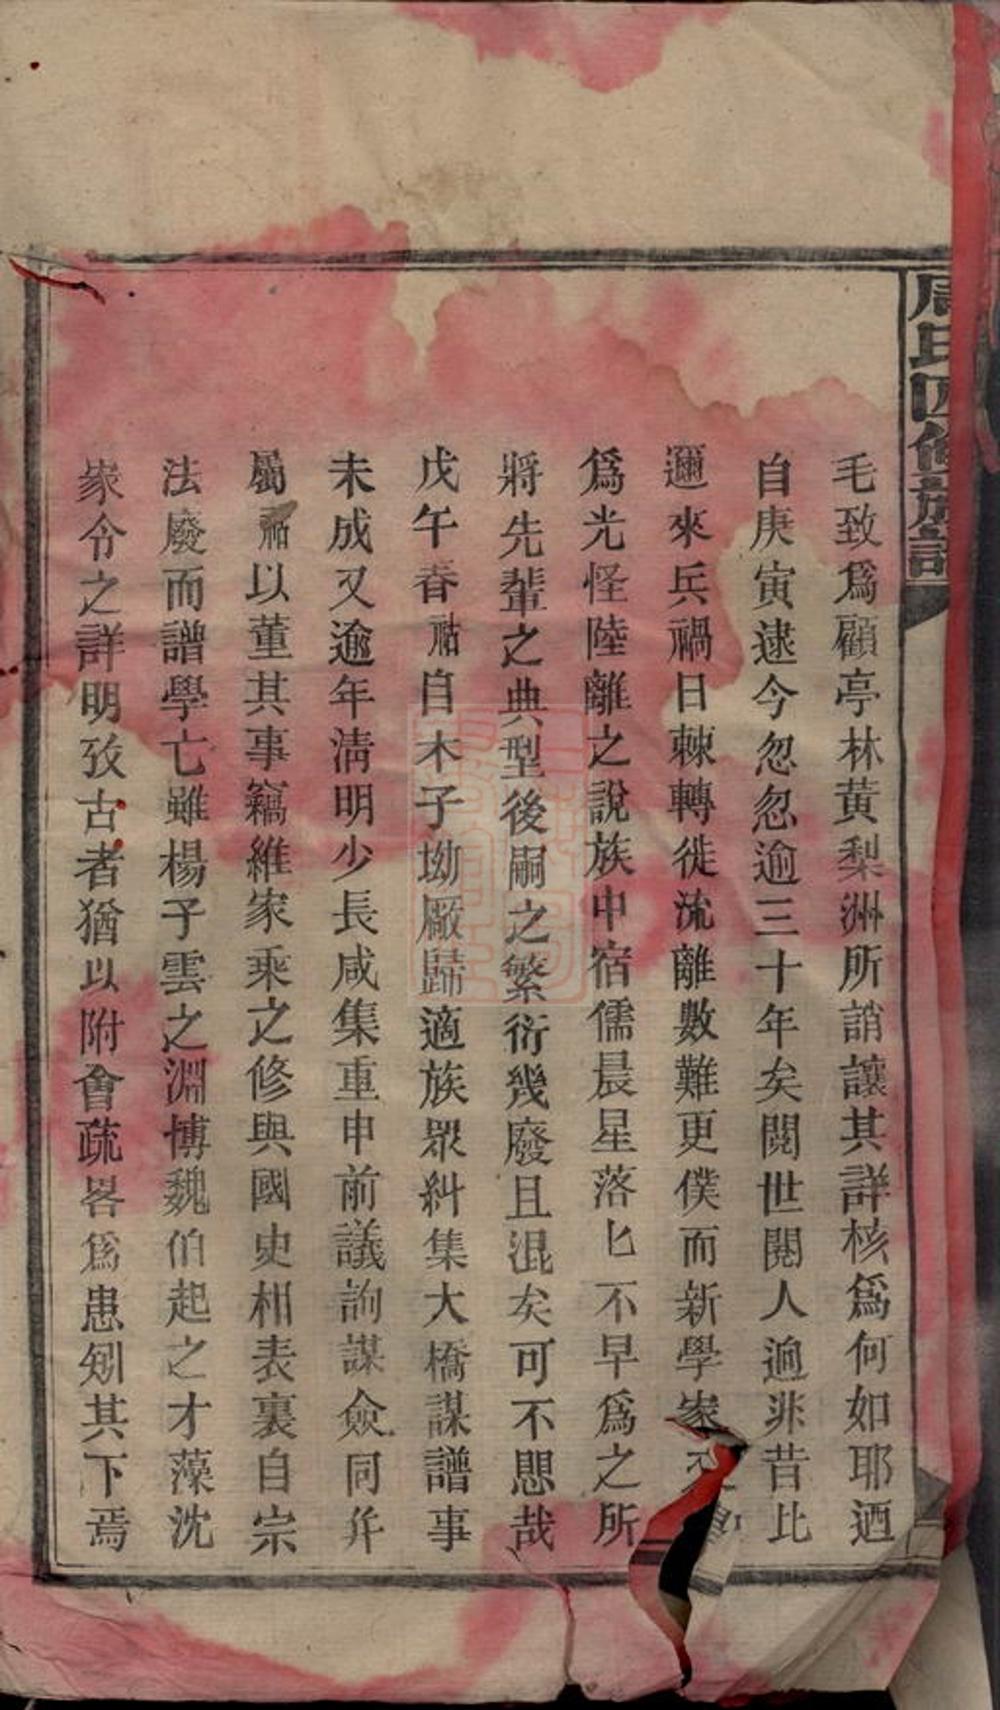 周氏四修族譜
毛致爲顧亭林黃梨洲所誚讓其詳核爲何如耶迺
自庚寅逮今忽忽逾三十年矣閱世閱人逈非昔比
邇來兵禍日棘轉徙流離數難更僕而新學家又
爲光怪陸離之說族中宿儒晨星落匕不早爲之所
將先輩之典型後嗣之繁衍幾廢且混矣可不思哉
戊午春祐自木子坳廠歸適族眾糾集大橋謀譜事
未成又逾年淸明少長咸集重申前議詢謀僉同幷
屬祐以董其事竊維家乘之修與國史相表裏自宗
法廢而譜學亡雖楊子雲之淵博魏伯起之才藻沈
家令之詳明攷古者猶以附會疏畧爲患矧其下焉